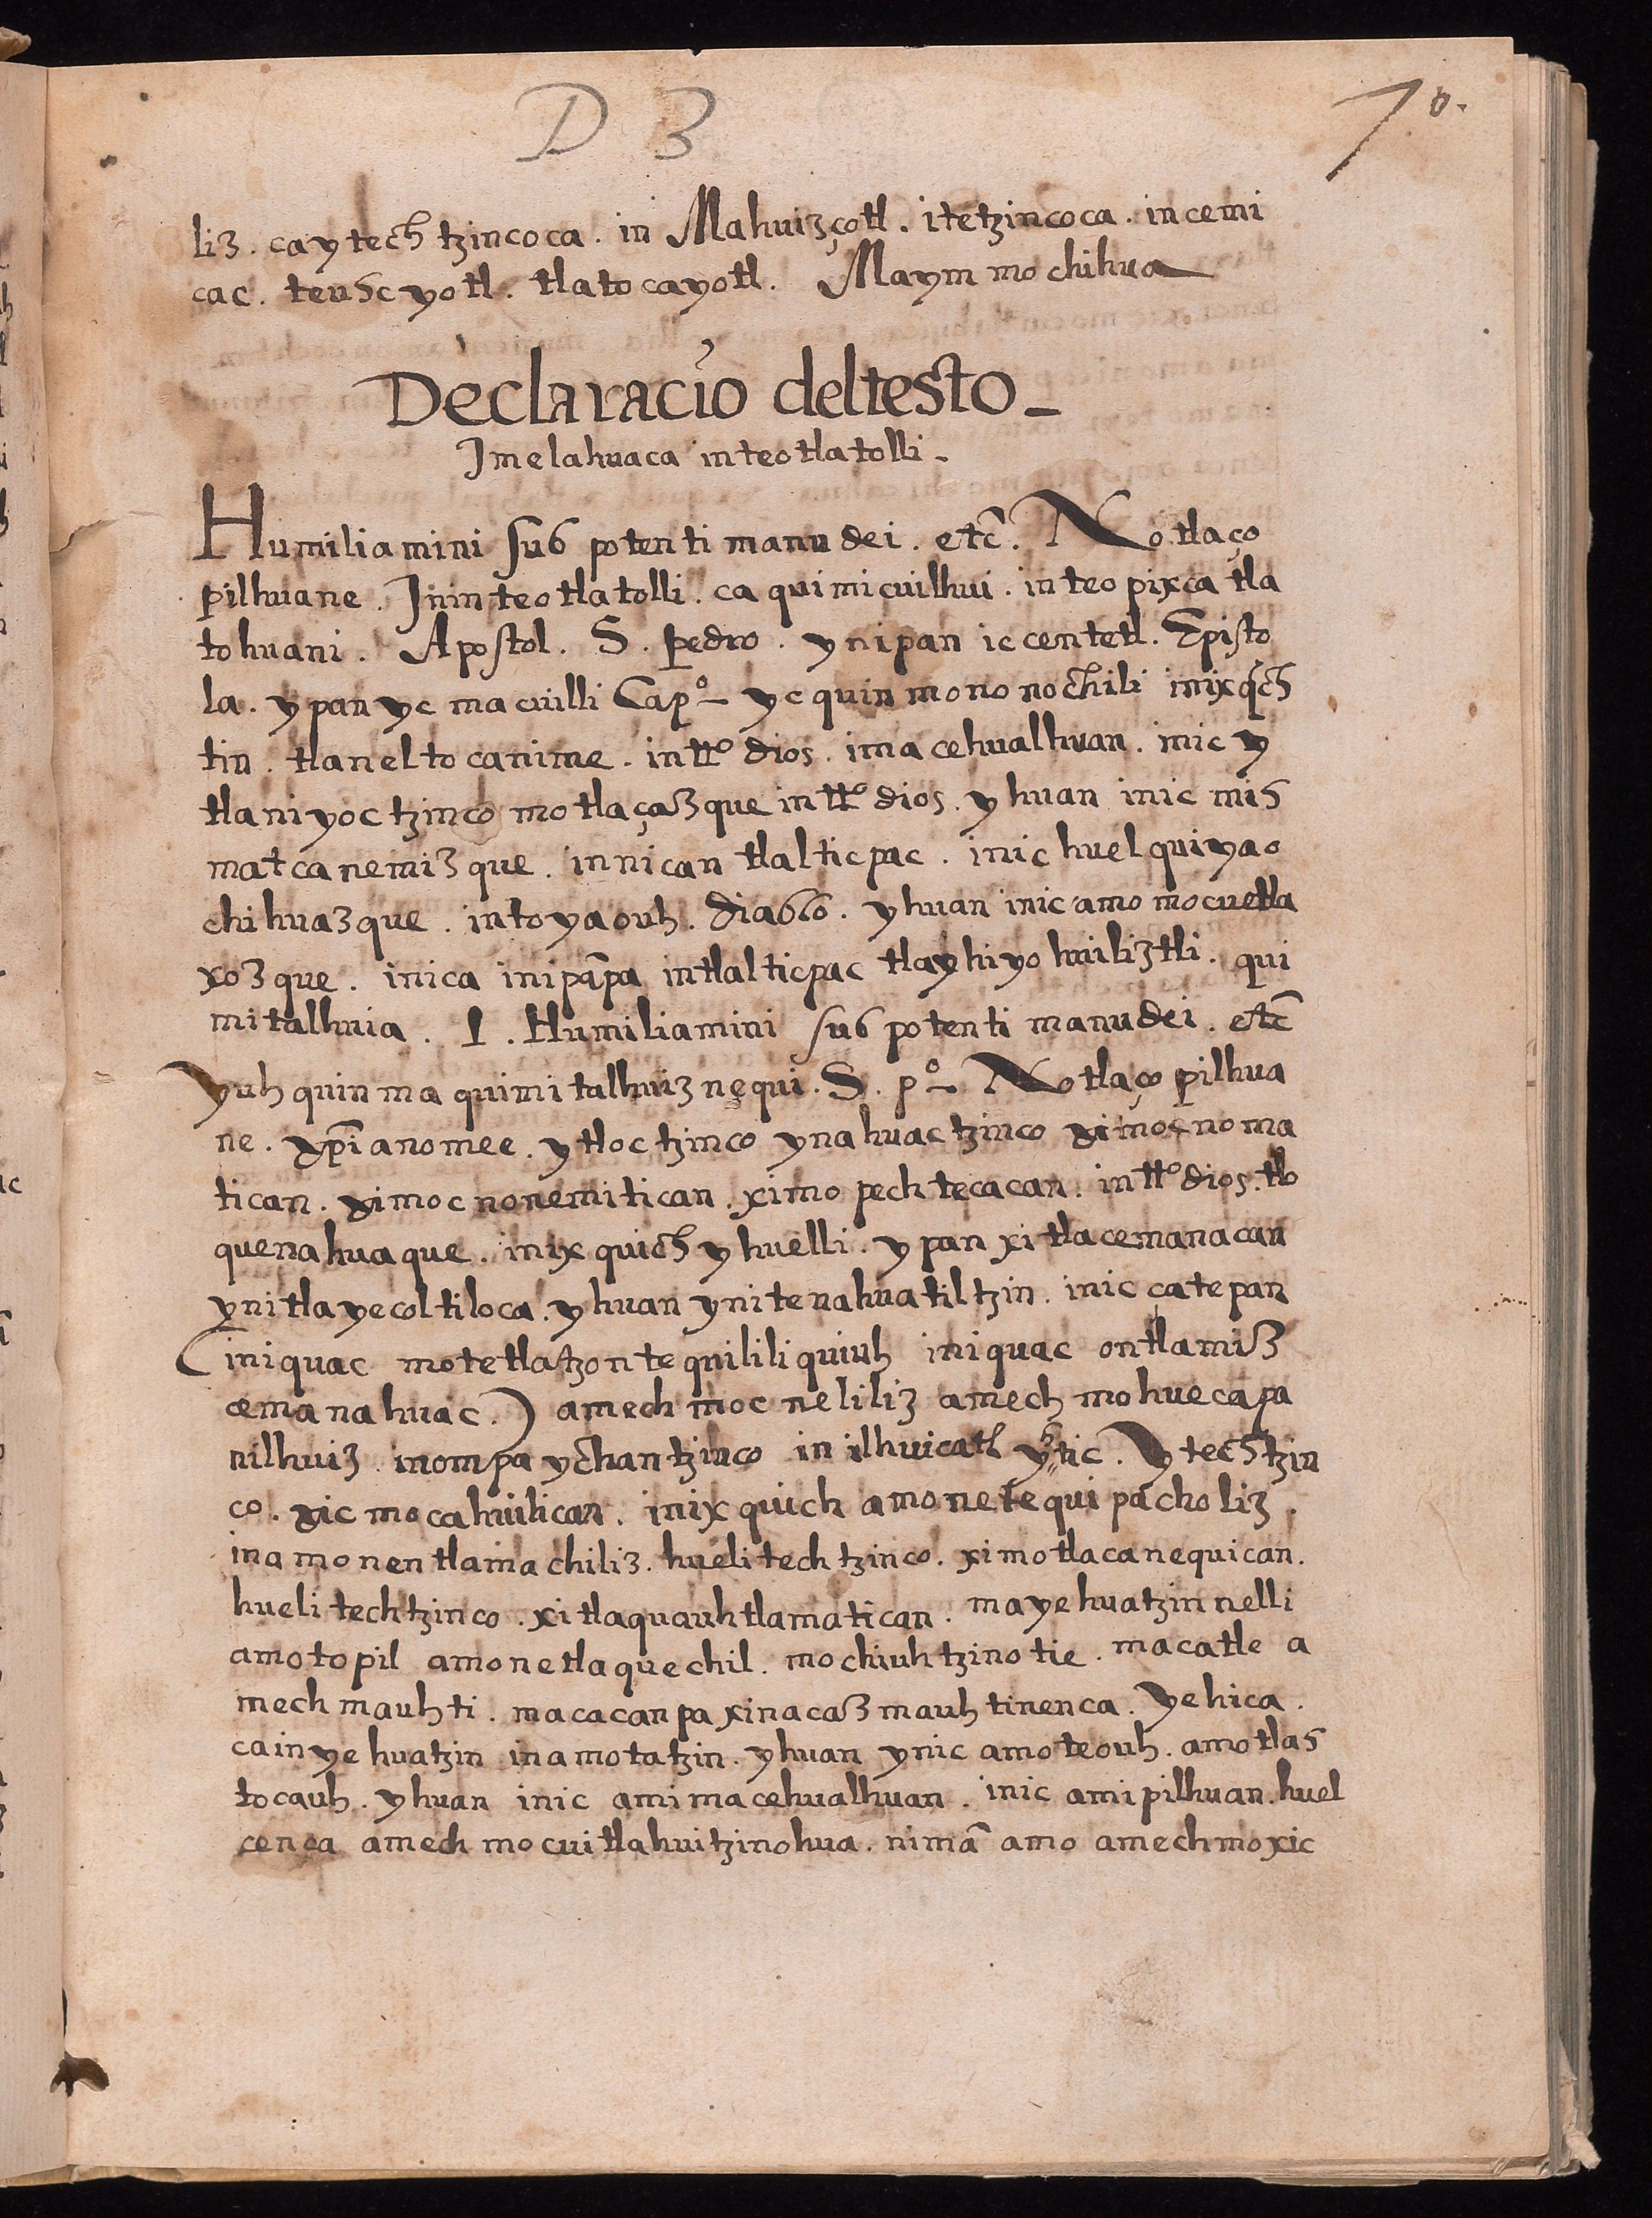 D 3
70.
liz. caytech tzincoca. in Mahuizçotl. itetzincoca. incemi
cac. teuhcyotl. tlatocayotl. Maym mochihua
Declaraciõ deltesto_
Jmelahuaca inteotlatolli_
Humiliamini sub potenti manu dei. etc̃. Notlaço
pilhuane. Jnin teotlatolli. ca quimicuilhui. in teopixca tla
tohuani. Apostol. S. pedro. ynipan ic centetl. Episto
la. ypan yc macuilli Capº_ yc quinmononochili inixq̃ch
tin. tlaneltocanime. in ttº dios. imacehualhuan. inic y
tlaniyoctzinco motlaçazque in ttº dios. yhuan inic mis
matcanemizque. in nican tlalticpac. inic huel quiyao
chihuazque. intoyaouh. diablo. yhuan inic amo mocuetla
xozque. inica inipãpa intlalticpac tlayhiyohuiliztli. qui
mitalhuia. I. Humiliamini sub potenti manu dei. etc̃
Yuhquinma quimitalhuiznequi. S. pº_ Notlaço pilhua
ne. xp̃ianomee. ytloctzinco ynahuactzinco ximocnoma
tican. ximocnonemitican. ximopechtecacan. in ttº dios. tlo
quenahuaque. inixquich yhuelli. ypan xitlacemanacan
ynitlayecoltiloca. yhuan ynitenahuatiltzin. inic catepan
(iniquac motetlatzontequililiquiuh iniquac ontlamiz
cemanahuac.) amechmocneliliz amechmohuecapa
nilhuiz inompa ychantzinco in ilhuicatl ytic. Ytechtzin
co. xicmocahuilican. inixquich amonetequipacholiz.
inamonentlamachiliz. huelitechtzinco. ximotlacanequican.
huelitechtzinco. xitlaquauhtlamatican. mayehuatzin nelli
amotopil amonetlaquechil. mochiuhtzinotie. macatle a
mechmauhti. macacanpa xinacazmauhtinenca. Yehica.
cain yehuatzin inamotatzin. yhuan ynic amoteouh. amotlas
tocauh. yhuan inic amimacehualhuan. inic amipilhuan. huel
cenca amechmocuitlahuitzinohua. nimã amo amechmoxic